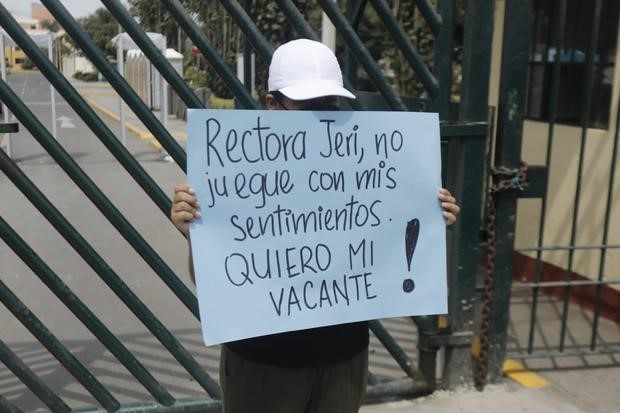 Rectora Jeri, no
juegue con mis
sentimientos.
QUIERO MI
VACANTE !